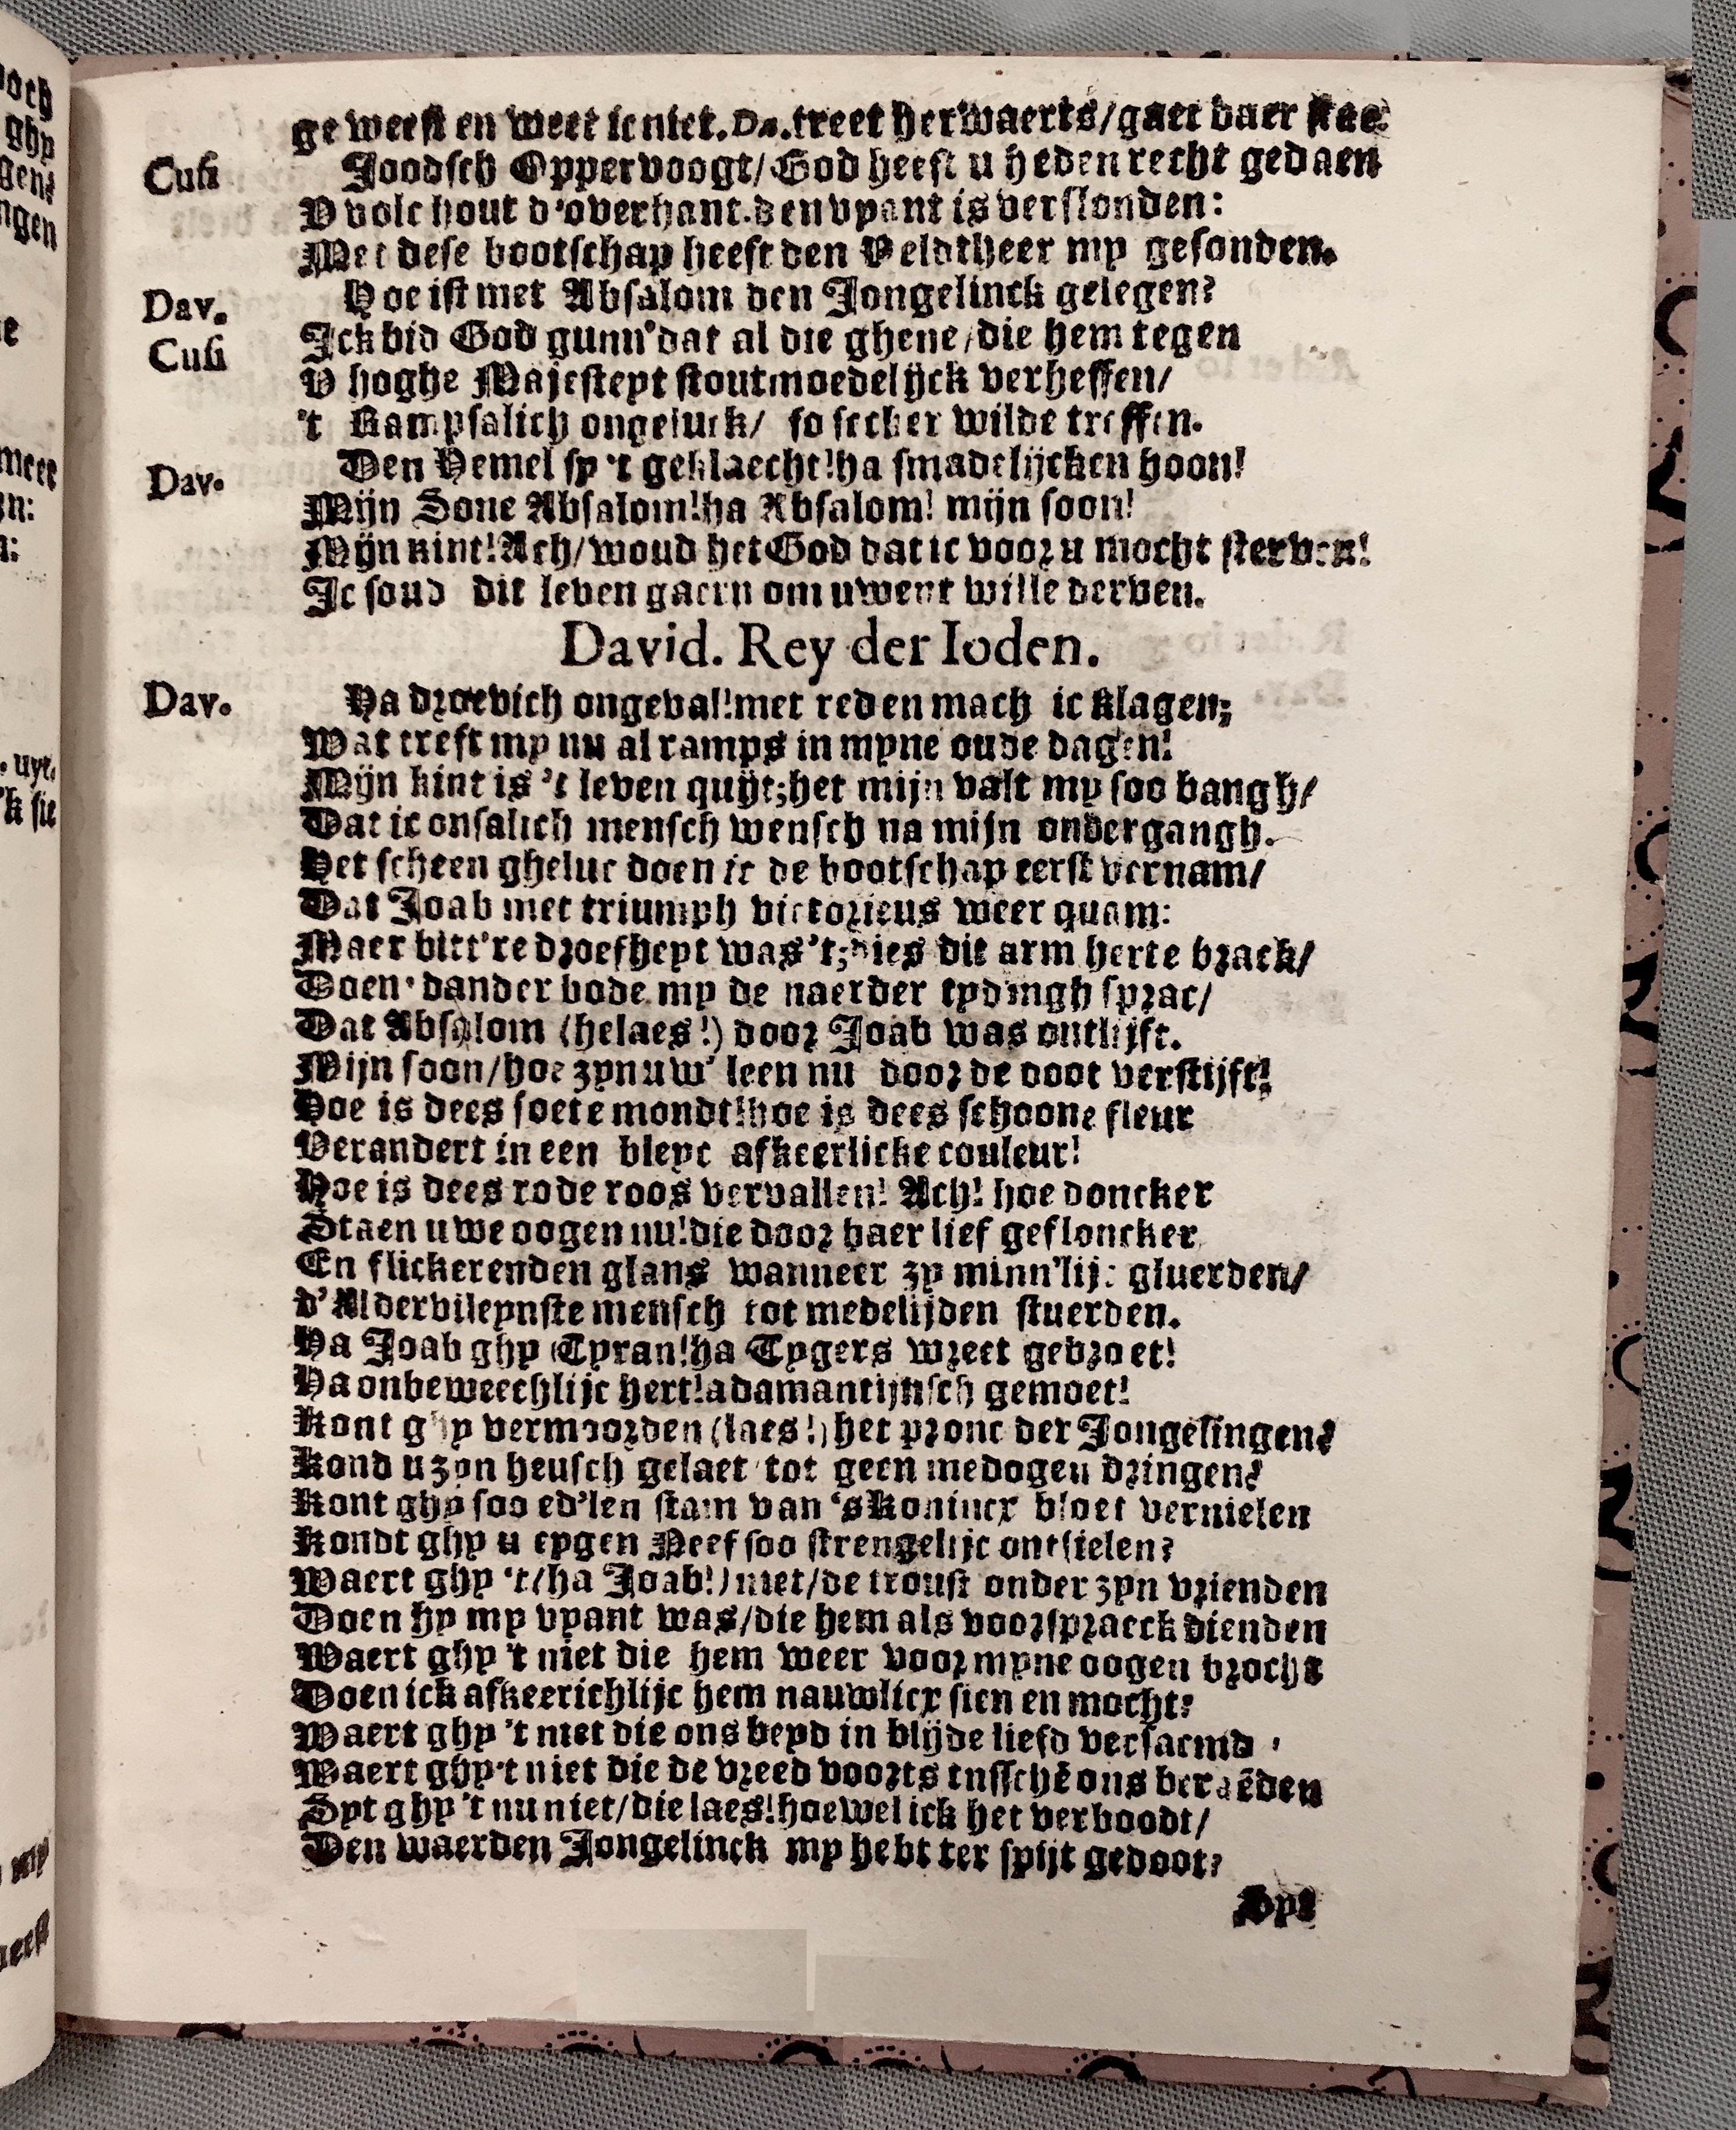 ge weest en weet ic niet. Da. treet herwaerts/gaet daer stae:
Cusi Joodsch Oppervoogt/God heeft u heden recht gedaen
V volc hout d'overhant. den vyant is verslonden:
Met dese bootschap heeft den Veldtheer my gesonden.
Dav. Hoe ist met Absalom den Jongelinck gelegen?
Cusi Ick bid God gunn' dat al die ghene/die hem tegen
V hoghe Majesteyt stoutmoedelijck verheffen/
't Rampsalich ongeluck/ so seecker wilde treffen.
Dav. Den Hemel sy 't geklaecht! ha smadelijcken hoon!
Mijn Sone Absalom! ha Absalom! mijn soon!
Mijn kint! Ach/woud het God dat ic voor u mocht sterven!
Ic soud dit leven gaern om uwent wille derven.
David. Rey der Ioden.
Dav. Ha droevich ongeval! met reden mach ic klagen;
Wat treft my nu al ramps in myne oude dagen!
Mijn kint is 't leven quijt; het mijn valt my soo bangh/
Dat ic onsalich mensch wensch na mijn ondergangh.
Het scheen gheluc doen ic de bootschap eerst vernam/
Dat Joab met triumph victorieus weer quam:
Maer bitt're droefheyt was 't; dies dit arm herte brack/
Doen' dander bode my de naerder tydingh sprac/
Dat Absalom (helaes!) door Joab was ontlijft.
Mijn soon/hoe zyn uw' leen nu door de doot verstijft!
Hoe is dees soete mondt! hoe is dees schoone fleur
Verandert in een bleyc afkeerlicke couleur!
Hoe is dees rode roos vervallen! Ach! hoe doncker
Staen uwe oogen nu! die door haer lief gefloncker
En flickerenden glans wanneer zy minn'lijc gluerden/
d'Aldervileynste mensch tot medelijden stuerden.
Ha Joab ghy Tyran! ha Tygers wreet gebroet!
Ha onbeweechlijc hert! adamantijnsch gemoet!
Kont ghy vermoorden (laes!) het pronc der Jongelingen?
Kond u zyn heusch gelaet tot geen medogen dringen?
Kont ghy soo ed'len stam van 's Konincx bloet vernielen
Kondt ghy u eygen Neef soo strengelijc ontsielen?
Waert ghy 't (ha Joab!) niet/de troust onder zyn vrienden
Doen hy my vyant was/die hem als voorspraeck dienden
Waert ghy 't niet die hem weer voor myne oogen brocht
Doen ick afkeerichlijc hem nauwlicx sien en mocht?
Waert ghy 't niet die ons beyd in blijde liefd versaemd
Waert ghy 't niet die de vreed voorts tusschē ons beraēden
Syt ghy 't nu niet/die laes! hoewel ick het verboodt/
Den waerden Jongelinck my hebt ter spijt gedoot?
Syt